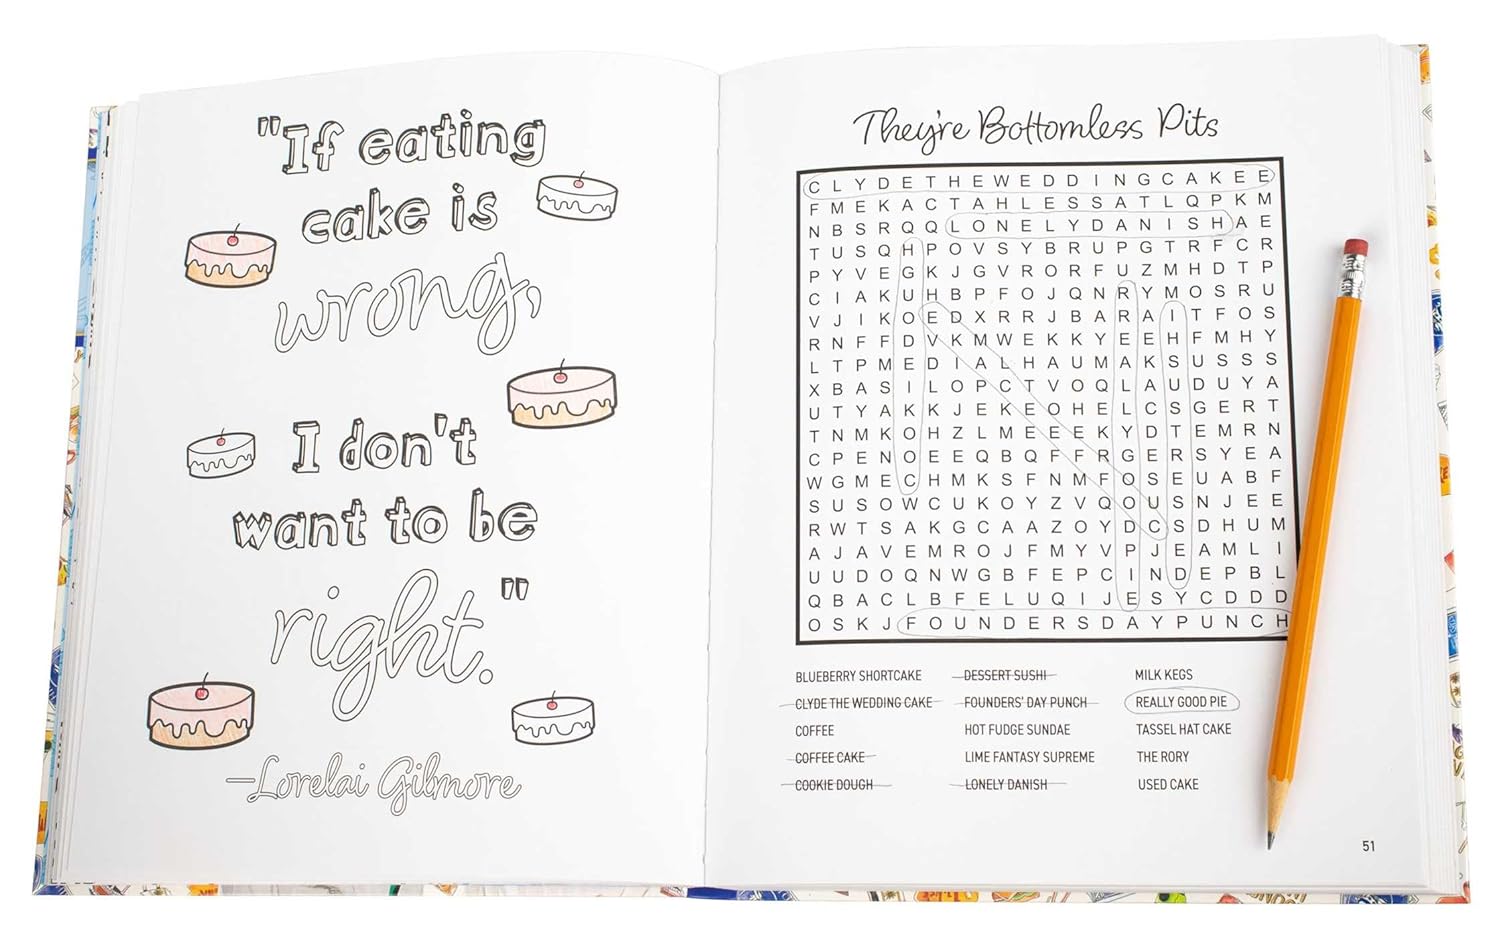 "If eating
cake is
wrong,
I don't
want to be
right."
—Lorelai Gilmore
They're Bottomless Pits
C L Y D E T H E W E D D I N G C A K E E
F M E K A C T A H L E S S A T L Q P K M
N B S R Q Q L O N E L Y D A N I S H A E
T U S Q H P O V S Y B R U P G T R F C R
P Y V E G K J G V R O R F U Z M H D T P
C I A K U H B P F O J Q N R Y M O S R U
V J I K O E D X R R J B A R A I T F O S
R N F F D V K M W E K K Y E E H F M H Y
L T P M E D I A L H A U M A K S U S S S
X B A S I L O P C T V O Q L A U D U Y A
U T Y A K K J E K E O H E L C S G E R T
T N M K O H Z L M E E E K Y D T E M R N
C P E N O E E Q B Q F F R G E R S Y E A
W G M E C H M K S F N M F O S E U A B F
S U S O W C U K O Y Z V Q O U S N J E E
R W T S A K G C A A Z O Y D C S D H U M
A J A V E M R O J F M Y V P J E A M L I
U U D O Q N W G B F E P C I N D E P B L
Q B A C L B F E L U Q I J E S Y C D D D
O S K J F O U N D E R S D A Y P U N C H
BLUEBERRY SHORTCAKE
CLYDE THE WEDDING CAKE
COFFEE
COFFEE CAKE
COOKIE DOUGH
DESSERT SUSHI
FOUNDERS' DAY PUNCH
HOT FUDGE SUNDAE
LIME FANTASY SUPREME
LONELY DANISH
MILK KEGS
REALLY GOOD PIE
TASSEL HAT CAKE
THE RORY
USED CAKE
51